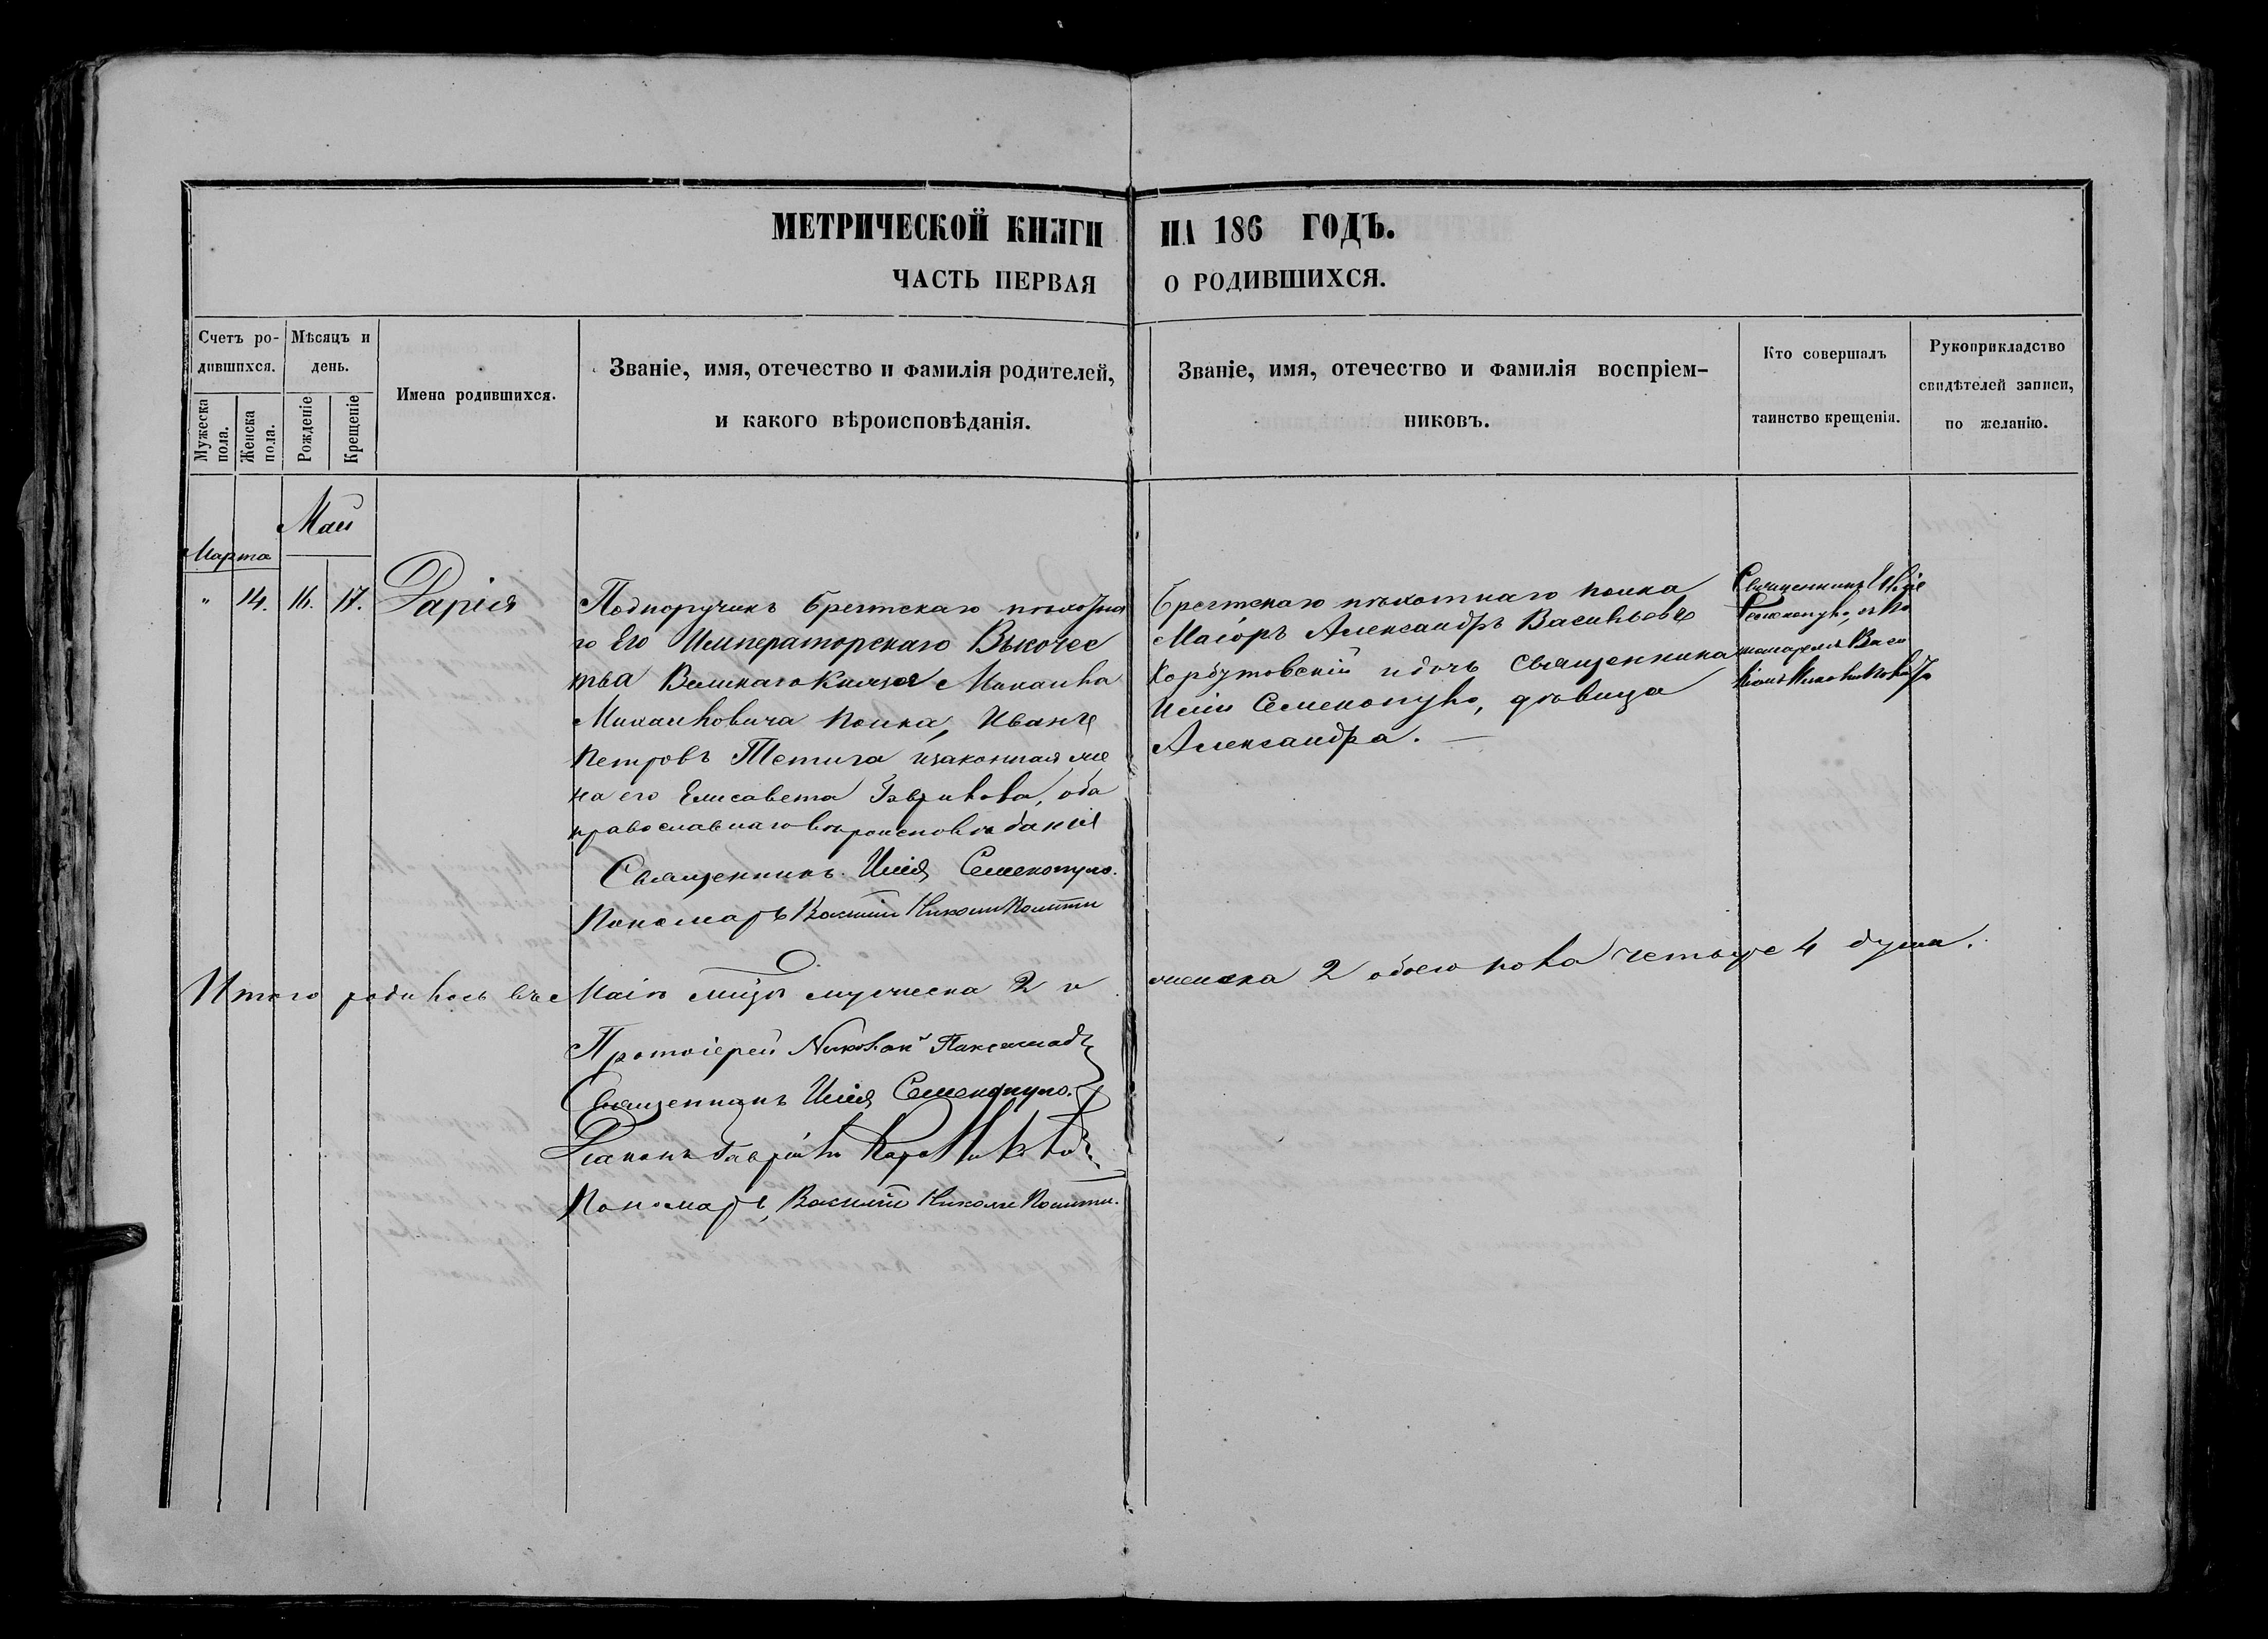 МЕТРИЧЕСКОЙ КНИГИ НА 186 ГОДЪ.
ЧАСТЬ ПЕРВАЯ О РОДИВШИХСЯ.
Счетъ ро-
дившихся.
Мужеска
пола.
Женска
пола.
Мѣсяцъ и
день.
Рожденіе
Крещеніе
Имена родившихся.
Званіе, имя, отечество и фамилія родителей,
и какого вѣроисповѣданія.
Званіе, имя, отечество и фамилія воспріем-
никовъ.
Кто совершалъ
таинство крещенія.
Рукоприкладство
свидѣтелей записи,
по желанію.
Марта
Маи
" 14. 16. 17. Дарія
Подпоручикъ Брестскаго пѣхотна
го Его Императорскаго Высочес
тва Великаго Князя Михаила
Михаиловича полка, Иванъ
Петровъ Тетига изаконная же
на его Елисавета Гаврилова, оба
православнаго вѣроисповѣданія
Священникъ Илія Семенопуло.
Пономарь Василій Николи Политти
Брестскаго пѣхотнаго полка
Маіоръ Александръ Васильевъ
Хорбутовскій идочь Священника
Иліи Семенопуло, дѣвица
Александра. —
Священникъ Илія
Семенопуло, съ По
номаремъ Васи
ліемъ
Итого родилось въ Маіѣ мцѣ мужеска 2 и женска 2 обоего пола четыре 4 души.
Протоіерей Николай
Священникъ Илія Семенопуло.
Діаконъ Гавріилъ
Пономарь Василій Николи Политти.